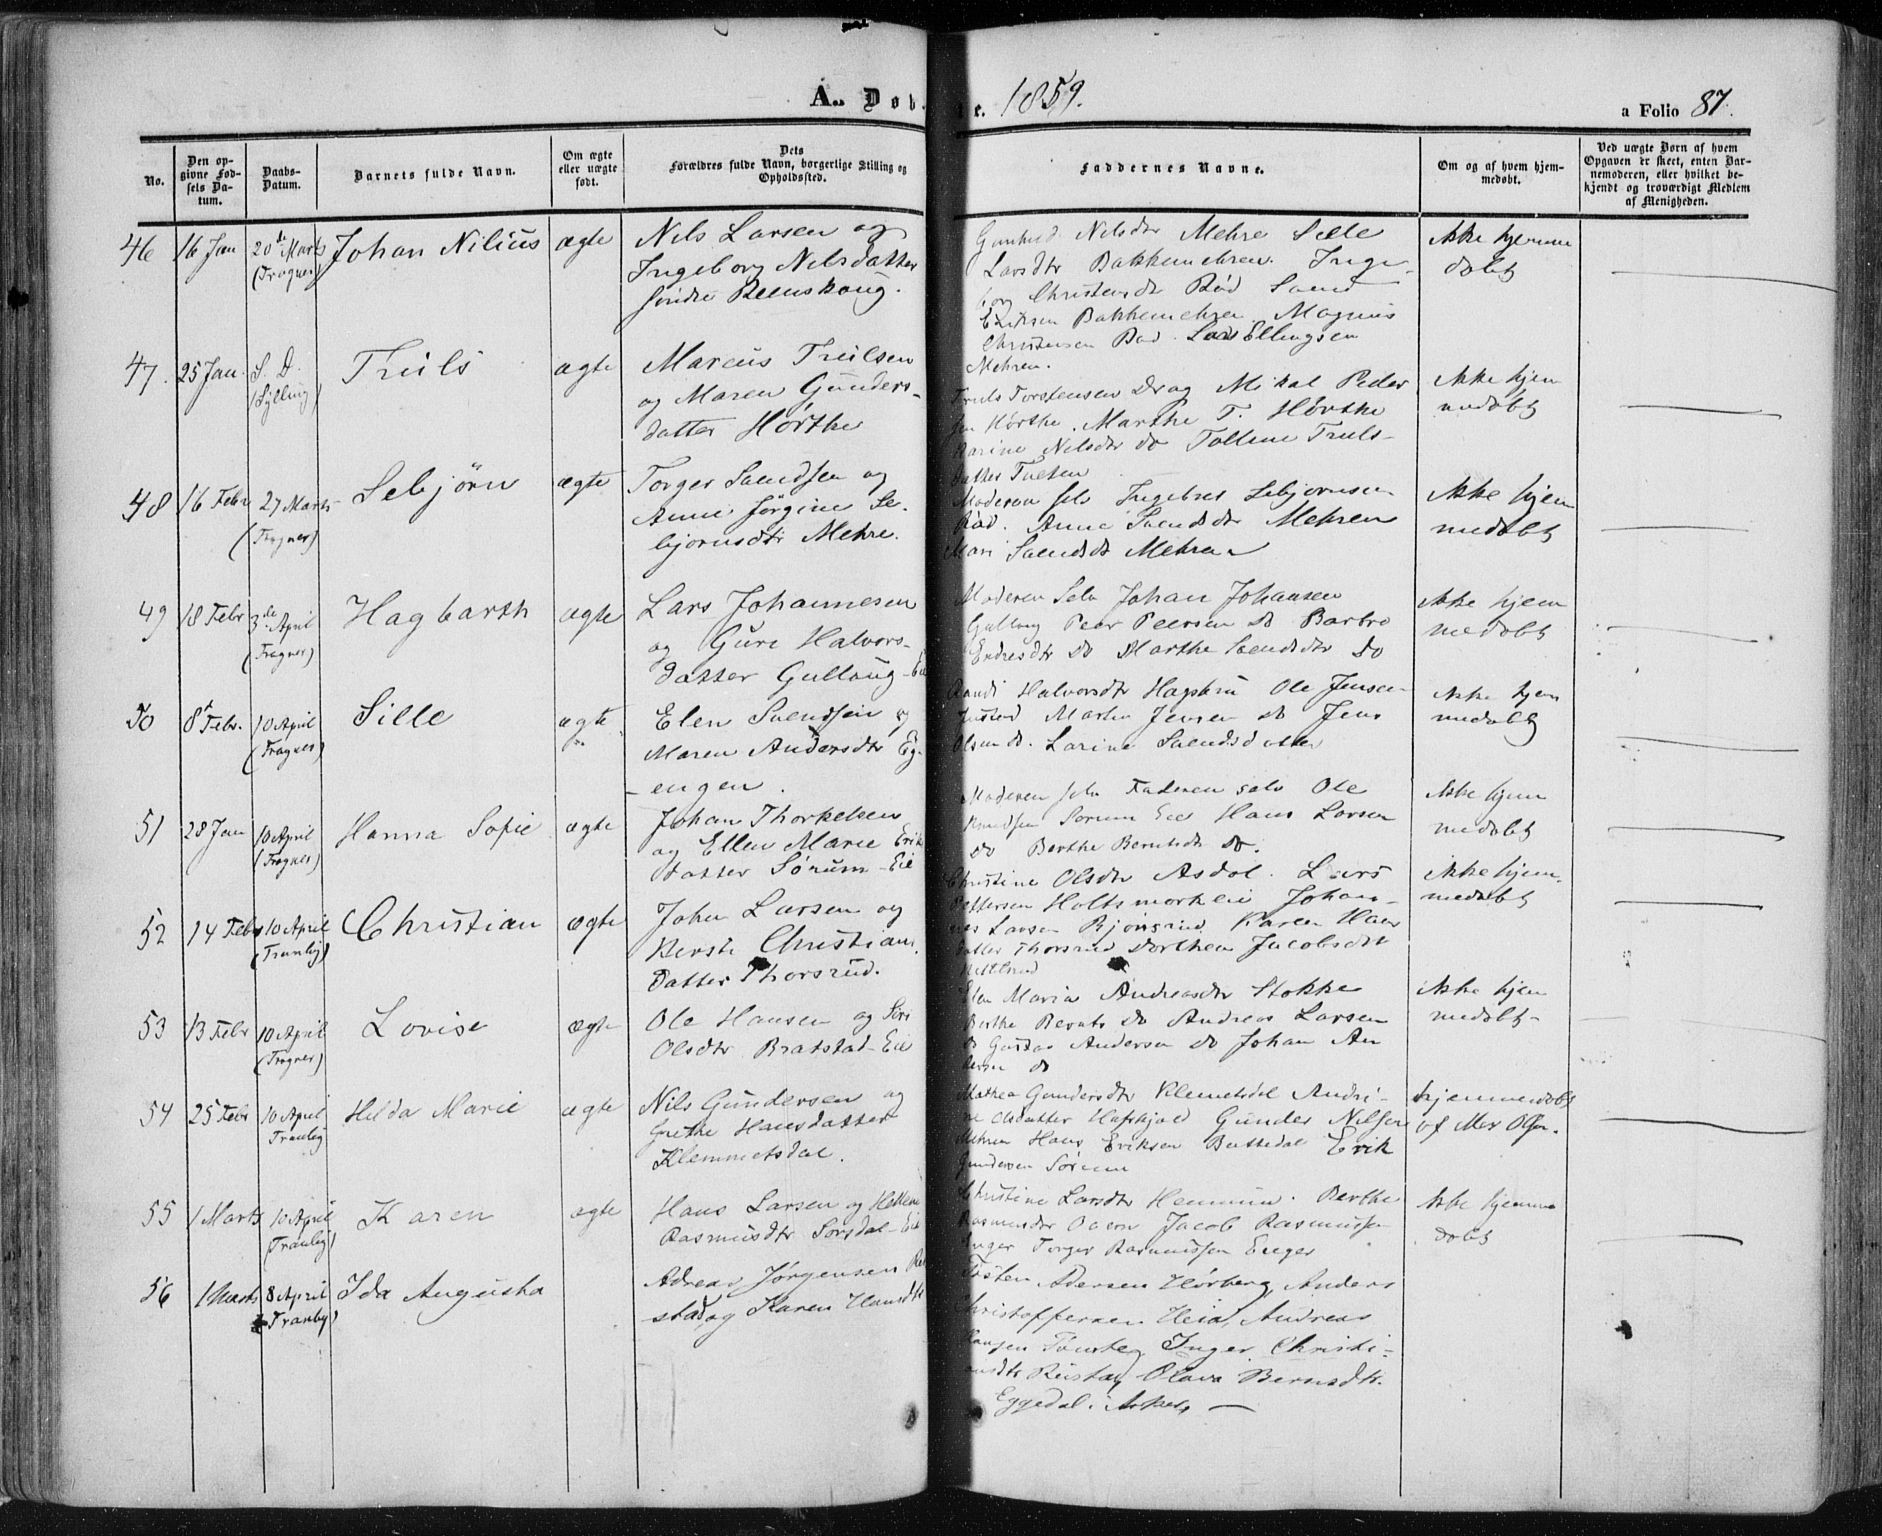 A. Døb. te. 1859.
a Folio 87.
No.
Den op-
givne Fød-
sels Da-
tum.
Daabs-
Datum.
Barnets fulde Navn.
Om ægte
eller uægte
født.
Dets
Forældres fulde Navn, borgerlige Stilling og
Opholdssted.
Faddernes Navne.
Om og af hvem hjem-
medøbt.
Ved uægte Børn af hvem
Opgaven er skeet, enten Bar-
nemoderen, eller hvilket be-
kjendt og troværdigt Medlem
af Menigheden.
46 16 Jan 20de Marts (Frogner) Johan Nilius ægte
Nils Larsen og
Ingeborg Nilsdatter
søndre Reenskoug.
Gunhild Nilsdtr Mehre Sille
Larsdtr Bakkemehren Inge-
borg Christensdtr Rød Svend
Eriksen Bakkemehren Magnus
Christensen Rød Lars Ellingsen
Mehren.
Ikke hjemme
døbt
47. 25 Jan. S. D. (Sylling) Truls ægte
Marcus Trulsen
og Maren Gunders-
datter Hørthe
Truls Torstensen Drag Mikal Peder
sen Hørthe. Marthe T. Hørthe
Karine Nilsdtr do Tolline Truls-
datter Tveten
Ikke hjem
medøbt
48 16 Febr 27 Marts (Frogner) Sebjørn ægte
Torger Svendsen og
Anne Jørgine Se-
bjørnsdtr Mehre.
Moderen selv Ingebret Sebjørnsen
Rød. Anne Svendsdtr Mehren
Mari Svendsdt Mehren
Ikke hjem
medøbt
49 18 Febr 3de April (Frogner) Hagbarth ægte
Lars Johannesen
og Guri Halvors-
datter Gulloug-Eie
Moderen Selv Johan Johansen
Gulloug Peer Peersen do Barbro
Endresdtr do Marthe Svendsdtr do
Ikke hjem
medøbt
50 8 Febr. 10 April (Frogner) Sille ægte
Elen Svendsen og
Maren Andersdtr Eg-
engen.
Randi Halvorsdtr Ole Jensen
Martin Jensen do Jens
Olsen do. Larine Svendsdatter
Ikke hjem
medøbt
51 28 Jan 10 April (Frogner) Hanna Sofie ægte
Johan Thorkelsen
og Ellen Marie Erik
datter Sørum-Eie
Moderen selv Faderen selv Ole
Knudsen Sørum Eie Hans Larsen
do Berthe Berntsdtr do.
Ikke hjem
medøbt
52 14 Febr 10 April (Tranby) Christian ægte
John Larsen og
Berthe Christians
datter Thorsrud.
Christine Olsdtr Asdøl. Lars
Pettersen Holtsmarkeie Johan-
nes Larsen Bjørnsrud Karen Hans
datter Thorsrud Dorthea Jacobsdtr
Ikke hjem.
medøbt
53 13 Febr 10 April (Frogner) Lovise ægte
Ole Hansen og Siri
Olsdtr Bratstad-Eie
Elen Maria Andreasdtr Stokke
Berthe Bernts do Andreas Larsen
do Gustav Andersen do Johan An
dersen do
Ikke hjem
medøbt-
54 25 Febr 10 April Tranby Hilda Marie ægte
Nils Gundersen og
Grethe Hansdatter
Klemmetsdal.
Mathea Gundersdtr Klemetsdal Andri-
ne Olsdatter Hafskjold Gunder Nilsen
Mehren Hans Eriksen Battedal Erik
Gundersen Sørum
hjemmedøbt
af Mor Olsen.
55 1 Marts 10 April (Tranby) Karen ægte
Hans Larsen og Hellene
Rasmusdtr Sørsdal-Eie
Christine Larsdtr Hennum. Berthe
Rasmusdtr Jacob Rasmussen
Torger Rasmussen Enger
Ikke hjemme
døbt
56 1 Marts 8 April (Tranby) Ida Augusta
Adreas Jørgensen
stad og Karen Hansdtr
Tosten Adersen Hørberg, Anders
Christoffersen Heia, Andreas
Hansen Inger Christi-
ansdtr Olava Bernsdtr.
Eggedal i Asker, —